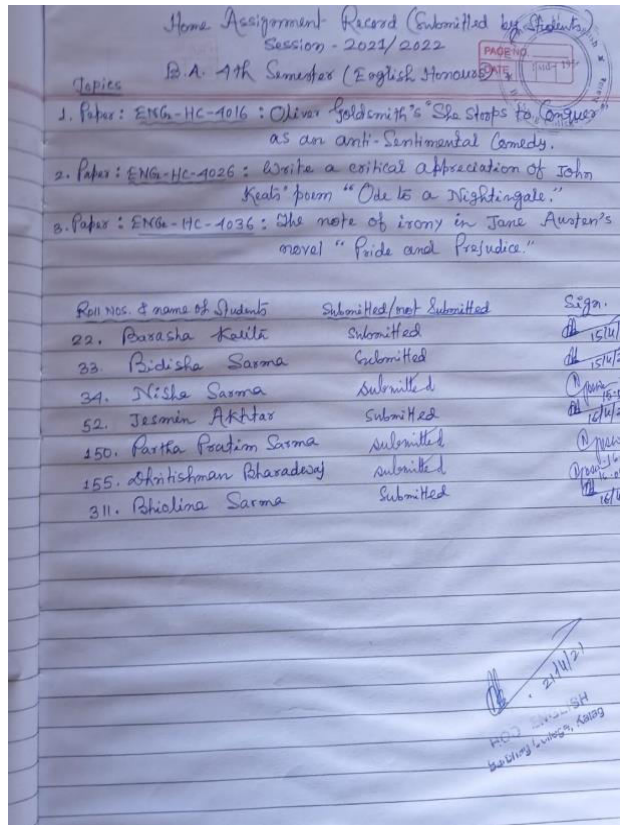 Home Assignment Record (Submitted by Students)
Session - 2021/2022
PAGE NO.
DATE
B.A. 4th Semester (English Honours)
Topics
1. Paper: ENG-HC-4016 : Oliver Goldsmith's "She Stoops to Conquer
as an anti-Sentimental Comedy.
2. Paper : ENG-HC-4026 : Write a critical appreciation of John
Keats' poem "Ode to a Nightingale."
3. Paper : ENG-HC-4036 : The note of irony in Jane Austen's
novel "Pride and Prejudice."
Roll Nos. & name of Students Submitted/not Submitted Sign.
22. Barasha Kalita Submitted 15/4/
33. Bidisha Sarma Submitted 15/4/2
34. Nisha Sarma Submitted
52. Jesmin Akhtar Submitted 16/4/2
150. Partha Pratim Sarma Submitted
155. Dhritishman Bharadwaj Submitted
311. Bhiolina Sarma Submitted 16/4
21/4/21
HOD ENGLISH
College,